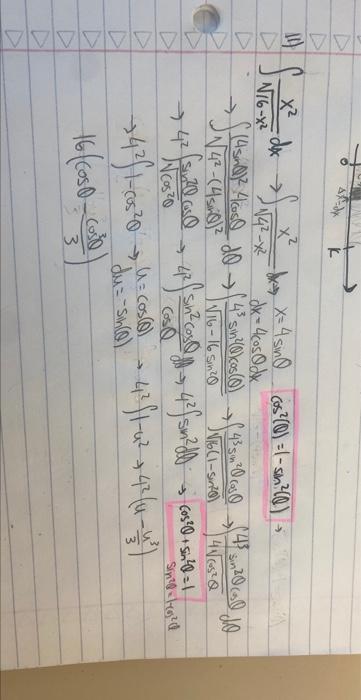 0 Δx=dx K
11) ∫ x²/√16-x² dx → ∫ x²/√4²-x² dx → x = 4 sinθ cos²(θ) = 1 - sin²(θ) →
dx = 4cosθdx
→ ∫ (4sinθ)² 4cosθ/√4²-(4sinθ)² dθ → ∫ 4³ sin²(θ)cos(θ)/√16-16sin²θ → ∫ 4³ sin²θ cosθ/√16(1-sin²θ) → ∫ 4³ sin²θ cosθ/4√cos²θ dθ
→ 4² ∫ sin²θ cosθ/√cos²θ → 4² ∫ sin²cosθ/cosθ dθ → 4² ∫ sin²dθ → cos²θ + sin²θ = 1
sin²θ = 1-cos²θ
→ 4² ∫ 1-cos²θ → u = cos(θ) → 4² ∫ 1-u² → 4² (u - u³/3)
du = -sin(θ)
16 (cosθ - cos³θ/3)